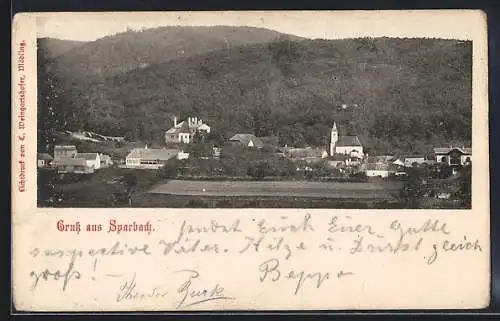 Lichtdruck von C. Weingartshofer, Mödling.
Gruß aus Sparbach.
sendet Euch Euer Gatte
respective Vater. Hitze u. Durst gleich
groß! — Beppo
Theodor